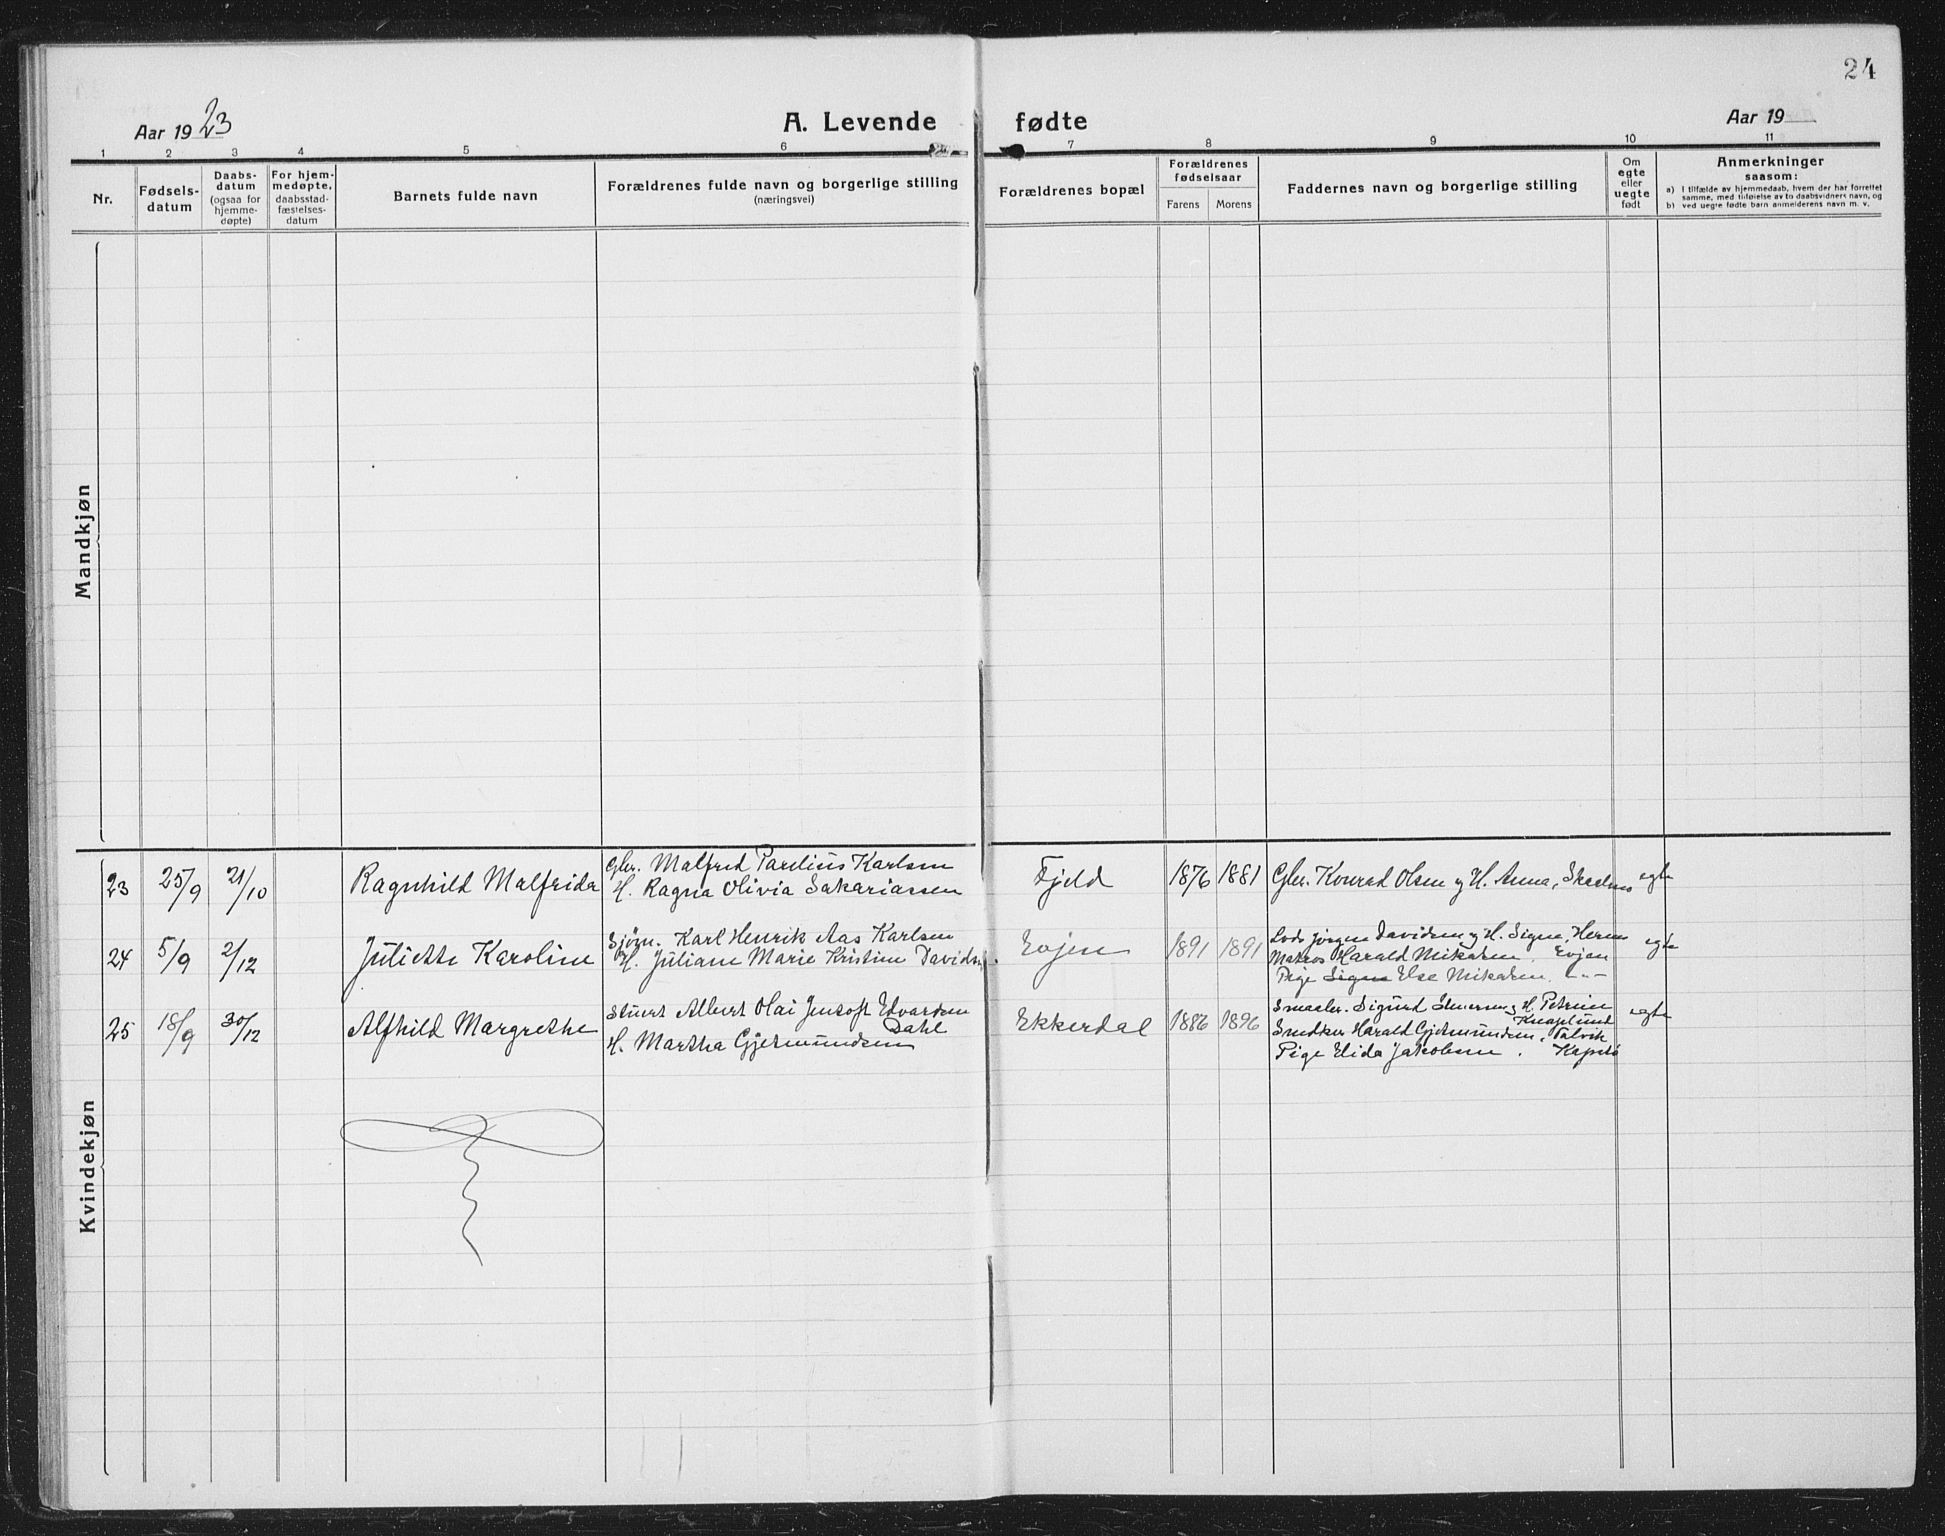 24
Aar 1923
A. Levende fødte
Aar 19
1 2 3 4 5 6 7 8 9 10 11
Nr.
Fødsels-
datum
Daabs-
datum
(ogsaa for
hjemme-
døpte)
For hjem-
medøpte,
daabsstad-
fæstelses-
datum
Barnets fulde navn
Forældrenes fulde navn og borgerlige stilling
(næringsvei)
Forældrenes bopæl
Forældrenes
fødselsaar
Farens Morens
Faddernes navn og borgerlige stilling
Om
egte
eller
uegte
født
Anmerkninger
saasom:
a) I tilfælde av hjemmedaab, hvem der har forrettet
samme, med tilføielse av to daabsvidners navn, og
b) ved uegte fødte barn anmelderens navn m. v.
Mandkjøn
Kvindekjøn
23 25/9 21/10 Ragnhild Malfrida
Gbr. Malfred Parelius Karlsen
H. Ragna Olivia Sakariassen
Fjeld 1876 1881
Gbr. Konrad Olsen og H. Anna,
egte
24 5/9 2/12 Juliette Karoline
Sjøm. Karl Henrik Aas Karlsen
H. Juliane Marie Kristine Davids.
Evjen 1891 1891
Lods Jørgen Davidsen og H. Signe,
Matros Harald Mikalsen. Evjen
Pige Signe Else Mikalsen. -"-
egte
25 18/9 30/12 Alfhild Margrethe
Stuert Albert Olai Jentoft Edvardsen
Dahl
H. Martha Gjermundsen
Ekkerdal 1886 1896
Sigurd og H. Petrine
Knaplund
Snedker Harald Gjermundsen, Talvik
Pige Elida Jakobsen.
egte